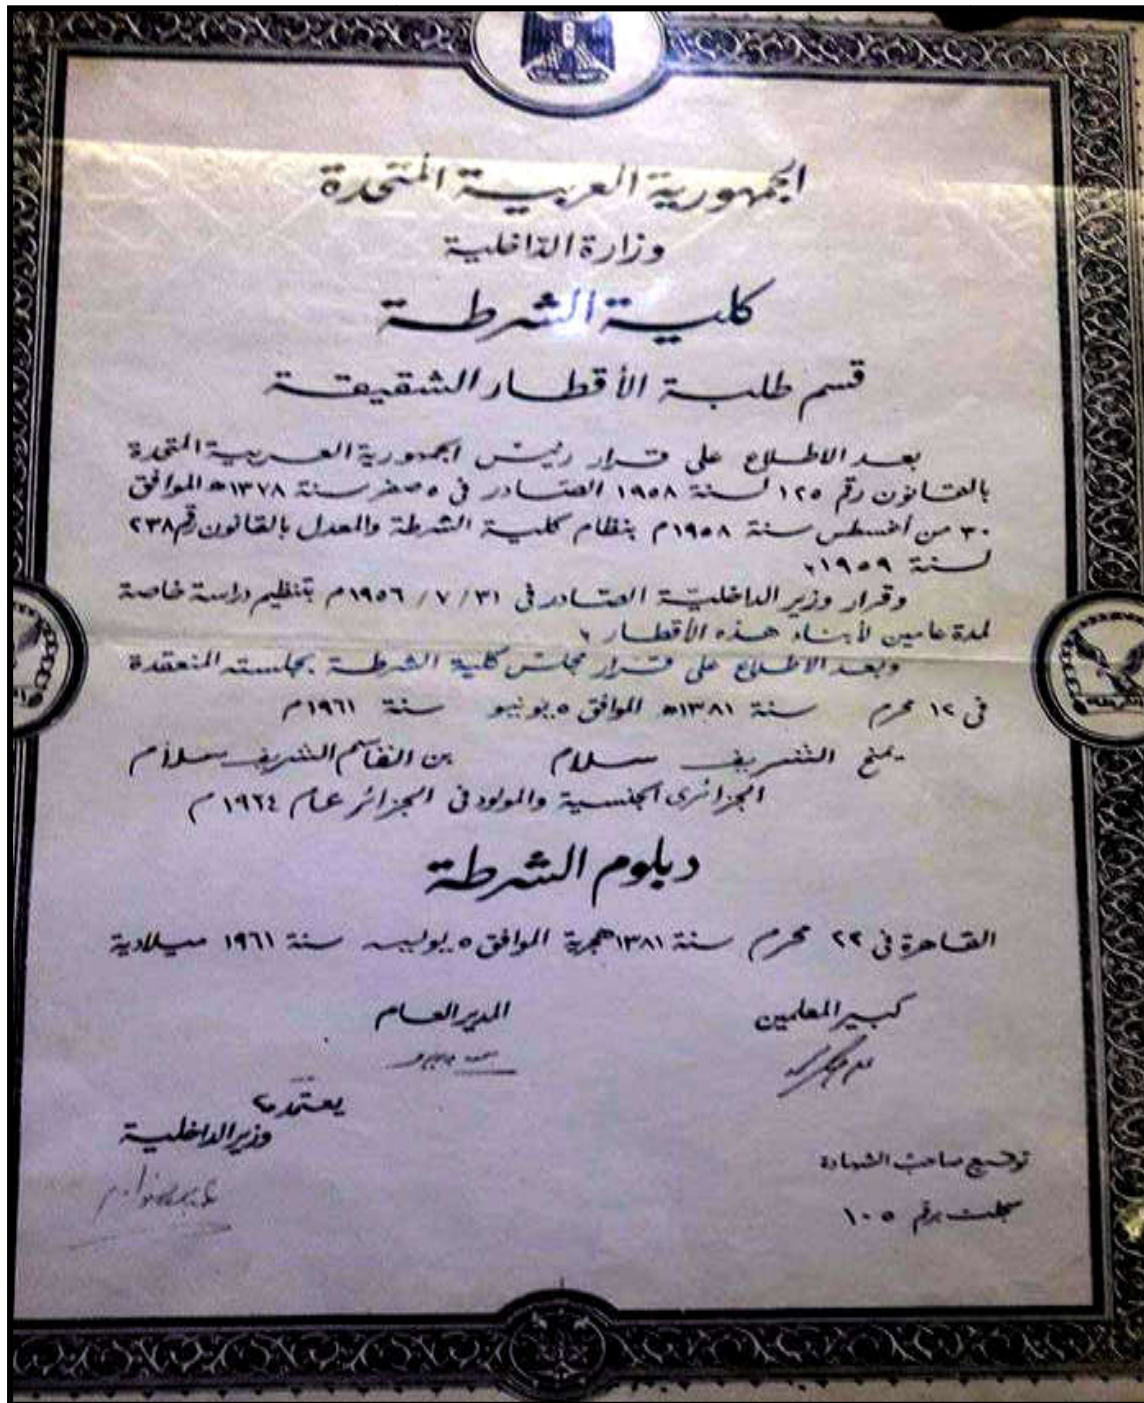 الجمهورية العربية المتحدة
وزارة الداخلية
كلية الشرطة
قسم طلبة الأقطار الشقيقة
بعد الاطلاع على قرار رئيس الجمهورية العربية المتحدة
بالقانون رقم ١٢٥ لسنة ١٩٥٨ الصادر فى ٥ صفر سنة ١٣٧٨ه الموافق
٣٠ من أغسطس سنة ١٩٥٨م بنظام كلية الشرطة والمعدل بالقانون رقم ٢٣٨
لسنة ١٩٥٩،
وقرار وزير الداخلية الصادر فى ٣١ / ٧ / ١٩٥٦م بتنظيم دراسة خاصة
لمدة عامين لأبناء هذه الأقطار،
وبعد الاطلاع على قرار مجلس كلية الشرطة بجلسته المنعقدة
فى ١٢ محرم سنة ١٣٨١ه الموافق ٥ يونيو سنة ١٩٦١م
يمنح الشريف سلام بن القاسم الشريف سلام
الجزائرى الجنسية والمولود فى الجزائر عام ١٩٣٤م
دبلوم الشرطة
القاهرة فى ٢٢ محرم سنة ١٣٨١ هجرية الموافق ٥ يوليه سنة ١٩٦١ ميلادية
كبير المعلمين المدير العام
يعتمد،
وزير الداخلية
توقيع صاحب الشهادة
سجلت برقم ١٠٥